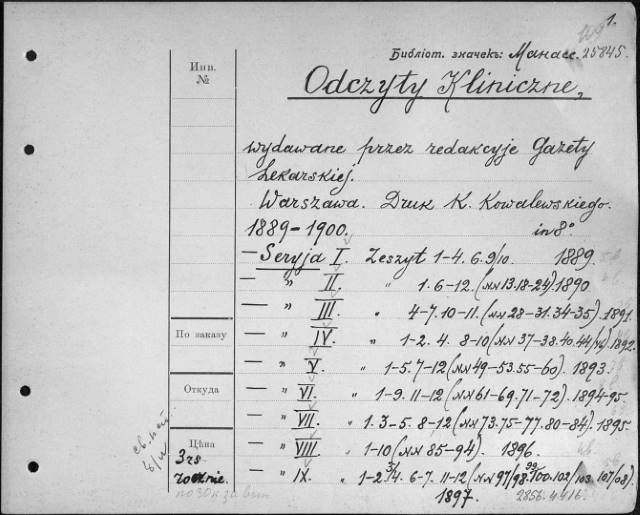 1.
109
Библіот. значекъ: Манасс. 25845.
Инв.
№
Odczyty Kliniczne,
wydawane przez redakcyje Gazety
Lekarskiej.
Warszawa. Druk K. Kowalewskiego.
1889-1900. in 8°
— Seryja I. Zeszyt 1-4. 6. 9/10. 1889.
— " II. " 1. 6-12. (NN 13.18-24). 1890
— " III. " 4-7. 10-11. (NN 28-31. 34-35). 1891.
По заказу
— " IV. " 1-2. 4. 8-10 (NN 37-38. 40. 44/46) 1892.
— " V. " 1-5. 7-12 (NN 49-53. 55-60). 1893.
Откуда
— " VI. " 1-9. 11-12 (NN 61-69. 71-72). 1894-95.
— " VII. " 1. 3-5. 8-12 (NN 73. 75-77. 80-84). 1895.
Цѣна
3 rs.
rocznie.
— " VIII. " 1-10 (NN 85-94). 1896.
— " IX. " 1-2. 3/4. 6-7. 11-12 (NN 97/98. 99/100. 102/103. 107/08).
1897. 2856.4416.
по 30 к. за вып.